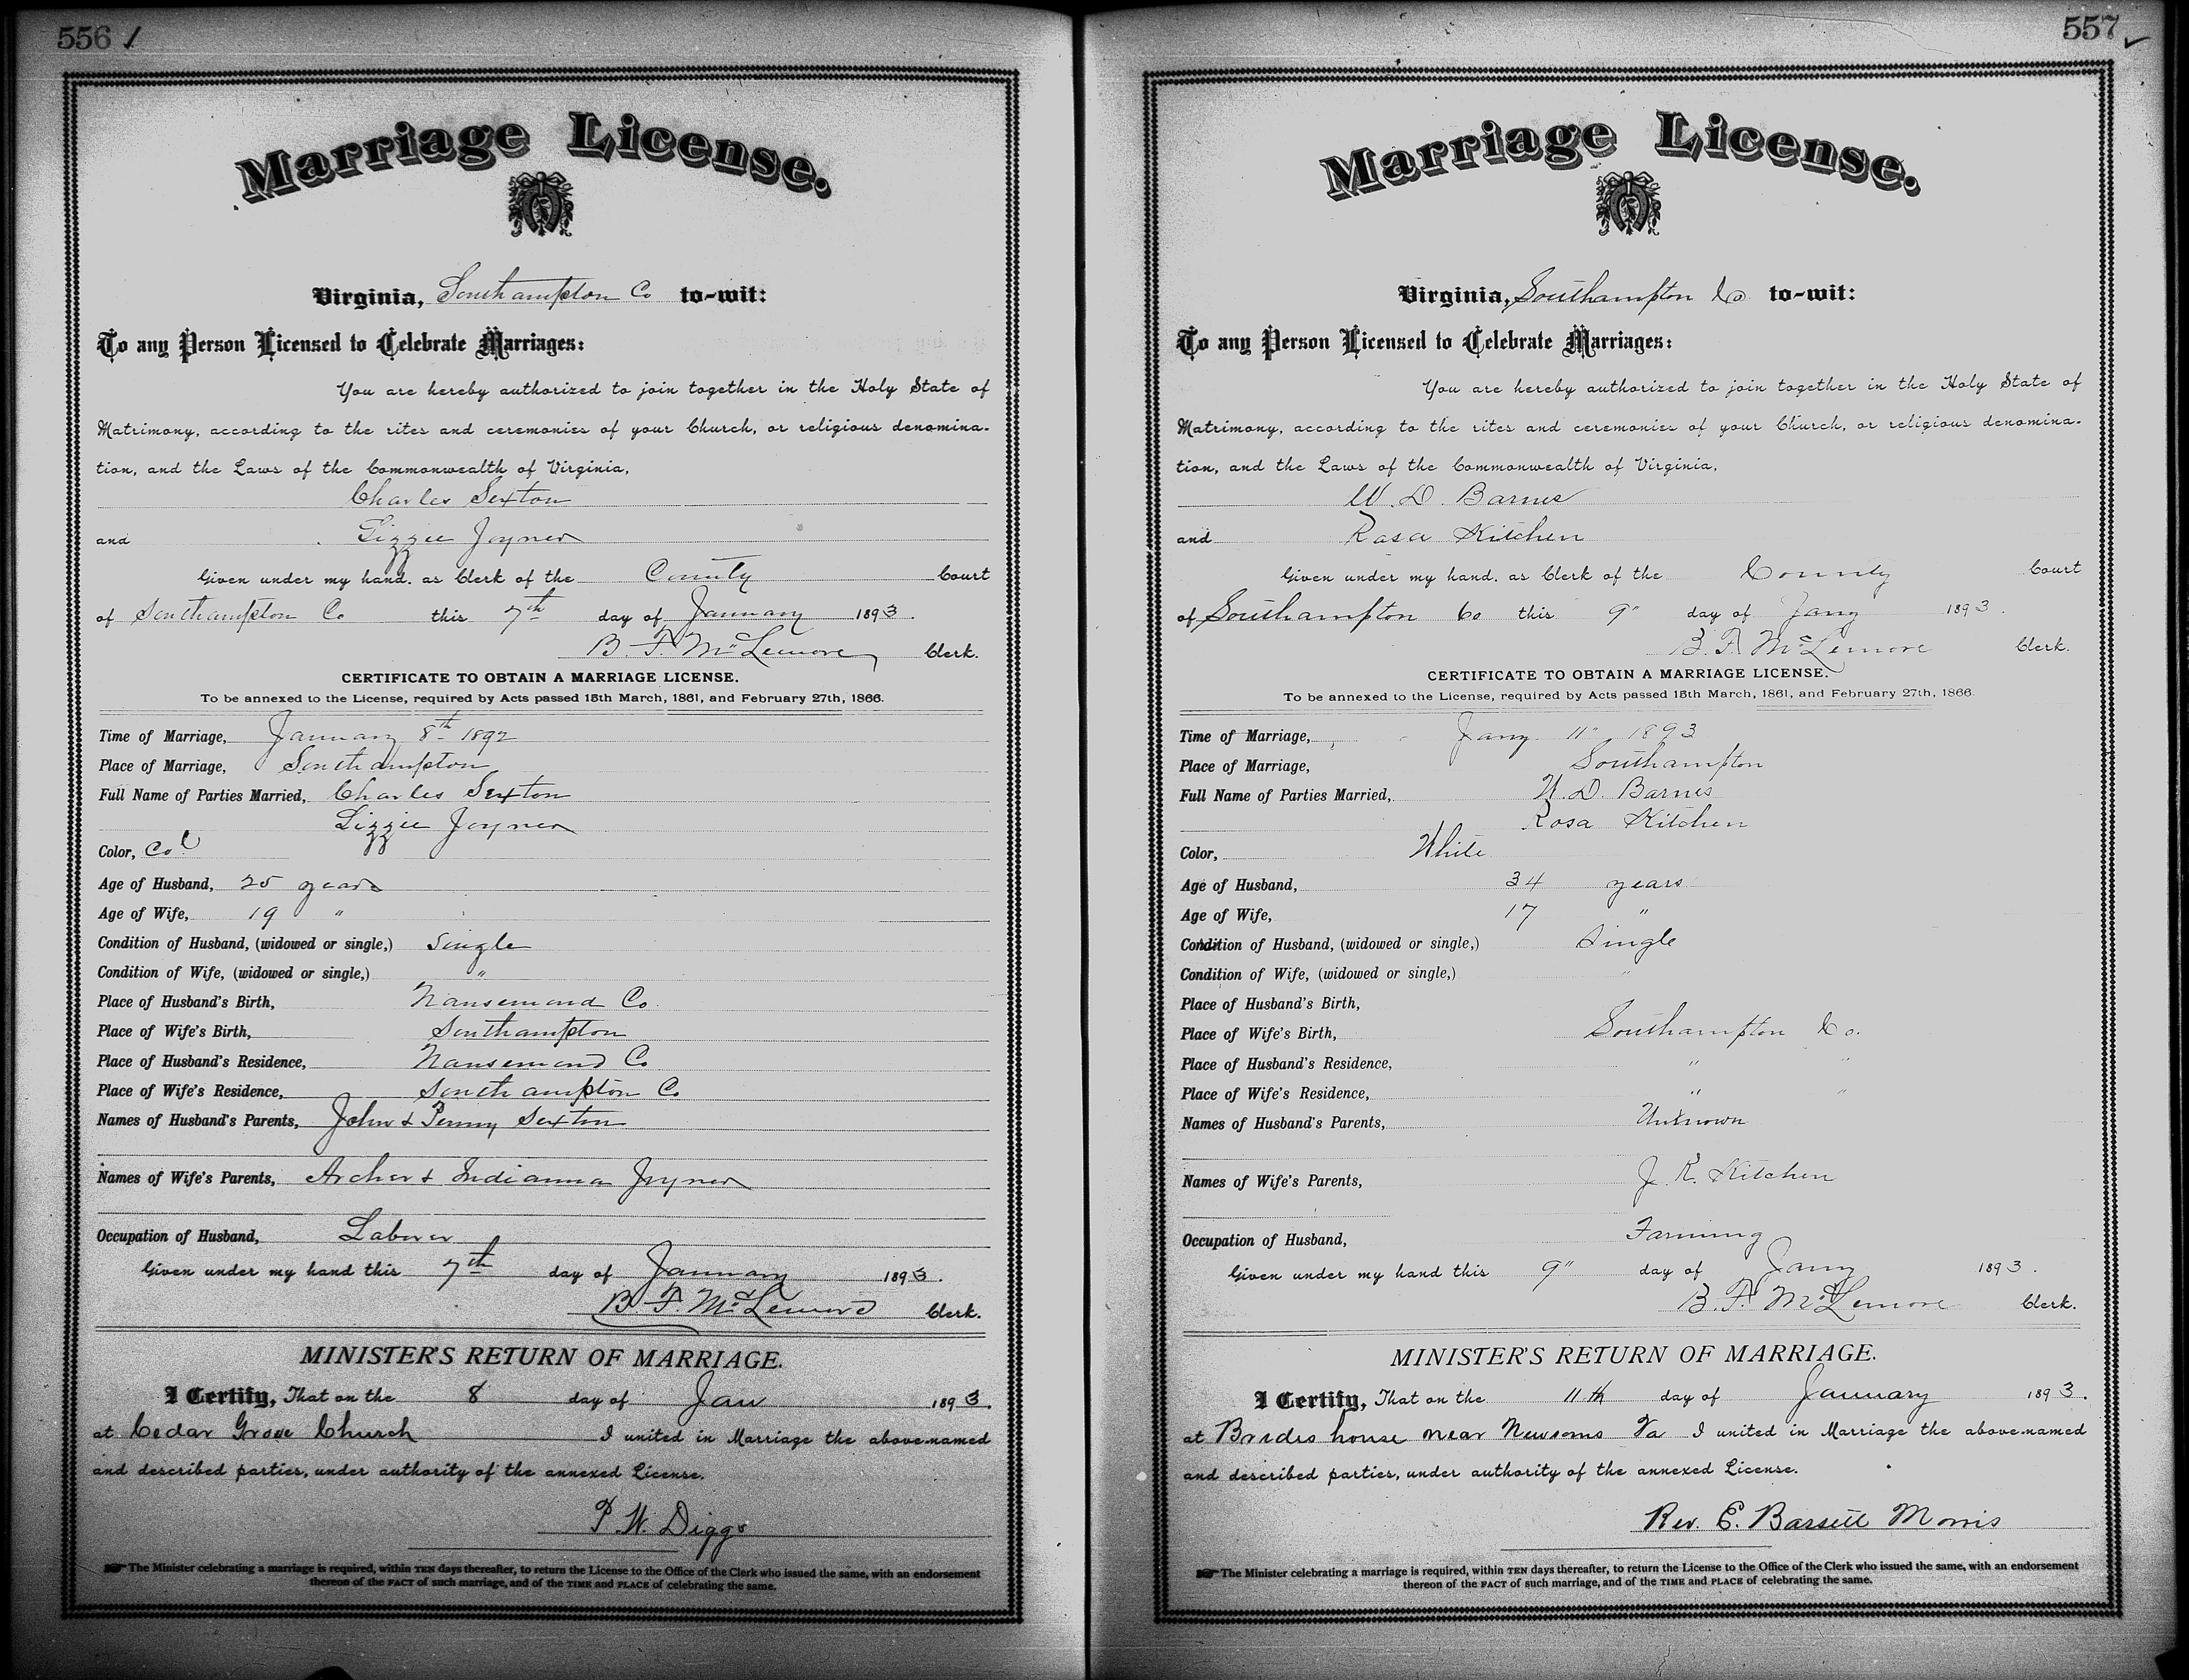 556
Marriage License.
Virginia, Southampton Co to-wit:
To any Person Licensed to Celebrate Marriages:
You are hereby authorized to join together in the Holy State of
Matrimony, according to the rites and ceremonies of your Church, or religious denomina-
tion, and the Laws of the Commonwealth of Virginia,
Charles Sexton
and Lizzie Joyner
Given under my hand, as Clerk of the County Court
of Southampton Co this 7th day of January 1893.
B. F. McLemore Clerk.
CERTIFICATE TO OBTAIN A MARRIAGE LICENSE.
To be annexed to the License, required by Acts passed 15th March, 1861, and February 27th, 1866.
Time of Marriage, January 8th 1892
Place of Marriage, Southampton
Full Name of Parties Married, Charles Sexton
Lizzie Joyner
Color, Col
Age of Husband, 25 years
Age of Wife, 19 "
Condition of Husband, (widowed or single,) Single
Condition of Wife, (widowed or single,) "
Place of Husband's Birth, Nansemond Co
Place of Wife's Birth, Southampton
Place of Husband's Residence, Nansemond Co
Place of Wife's Residence, Southampton Co
Names of Husband's Parents, John & Penny Sexton
Names of Wife's Parents, Archer & Indianna Joyner
Occupation of Husband, Laborer
Given under my hand this 7th day of January 1893.
B. F. McLemore Clerk.
MINISTER'S RETURN OF MARRIAGE.
I Certify, That on the 8 day of Jan 1893.
at Cedar Grove Church I united in Marriage the above-named
and described parties, under authority of the annexed License.
P. W. Diggs
The Minister celebrating a marriage is required, within TEN days thereafter, to return the License to the Office of the Clerk who issued the same, with an endorsement
thereon of the FACT of such marriage, and of the TIME and PLACE of celebrating the same.
557
Marriage License.
Virginia, Southampton Co to-wit:
To any Person Licensed to Celebrate Marriages:
You are hereby authorized to join together in the Holy State of
Matrimony, according to the rites and ceremonies of your Church, or religious denomina-
tion, and the Laws of the Commonwealth of Virginia,
W. D. Barnes
and Rosa Kitchen
Given under my hand, as Clerk of the County Court
of Southampton Co this 9" day of Jany 1893.
B. F. McLemore Clerk.
CERTIFICATE TO OBTAIN A MARRIAGE LICENSE.
To be annexed to the License, required by Acts passed 15th March, 1861, and February 27th, 1866.
Time of Marriage, Jany 11" 1893
Place of Marriage, Southampton
Full Name of Parties Married, W. D. Barnes
Rosa Kitchen
Color, White
Age of Husband, 34 years
Age of Wife, 17 "
Condition of Husband, (widowed or single,) Single
Condition of Wife, (widowed or single,) "
Place of Husband's Birth,
Place of Wife's Birth, Southampton Co.
Place of Husband's Residence, " "
Place of Wife's Residence, " "
Names of Husband's Parents, Unknown
Names of Wife's Parents, J. R. Kitchen
Occupation of Husband, Farming
Given under my hand this 9" day of Jany 1893.
B. F. McLemore Clerk.
MINISTER'S RETURN OF MARRIAGE.
I Certify, That on the 11th day of January 1893.
at Brides house near Newsoms Va I united in Marriage the above-named
and described parties, under authority of the annexed License.
Rev. E. Morris
The Minister celebrating a marriage is required, within TEN days thereafter, to return the License to the Office of the Clerk who issued the same, with an endorsement
thereon of the FACT of such marriage, and of the TIME and PLACE of celebrating the same.